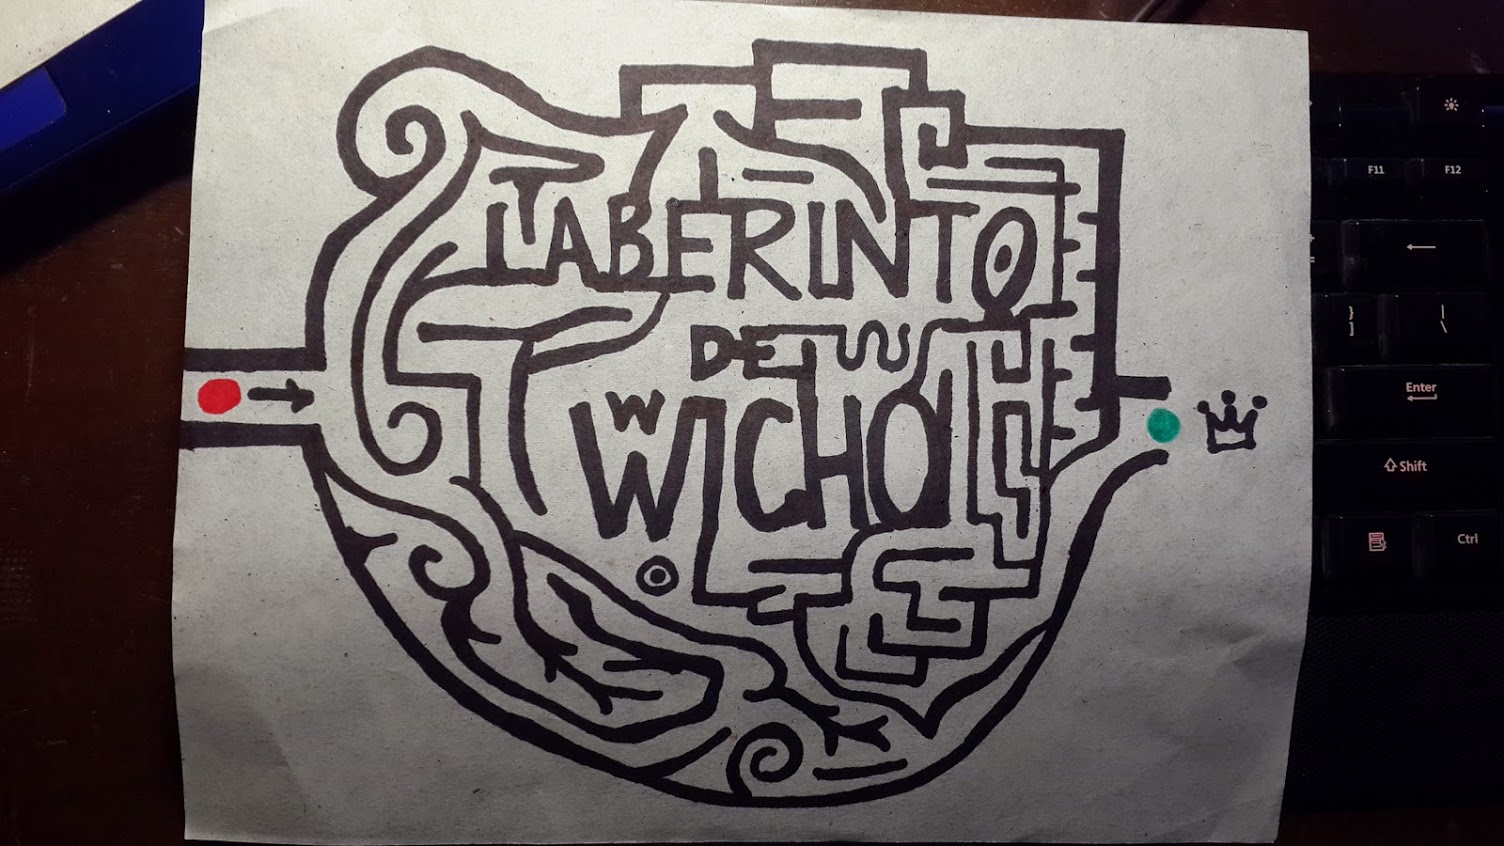 LABERINTO
DE TU
WICHO
F11
F12
Enter
Shift
Ctrl